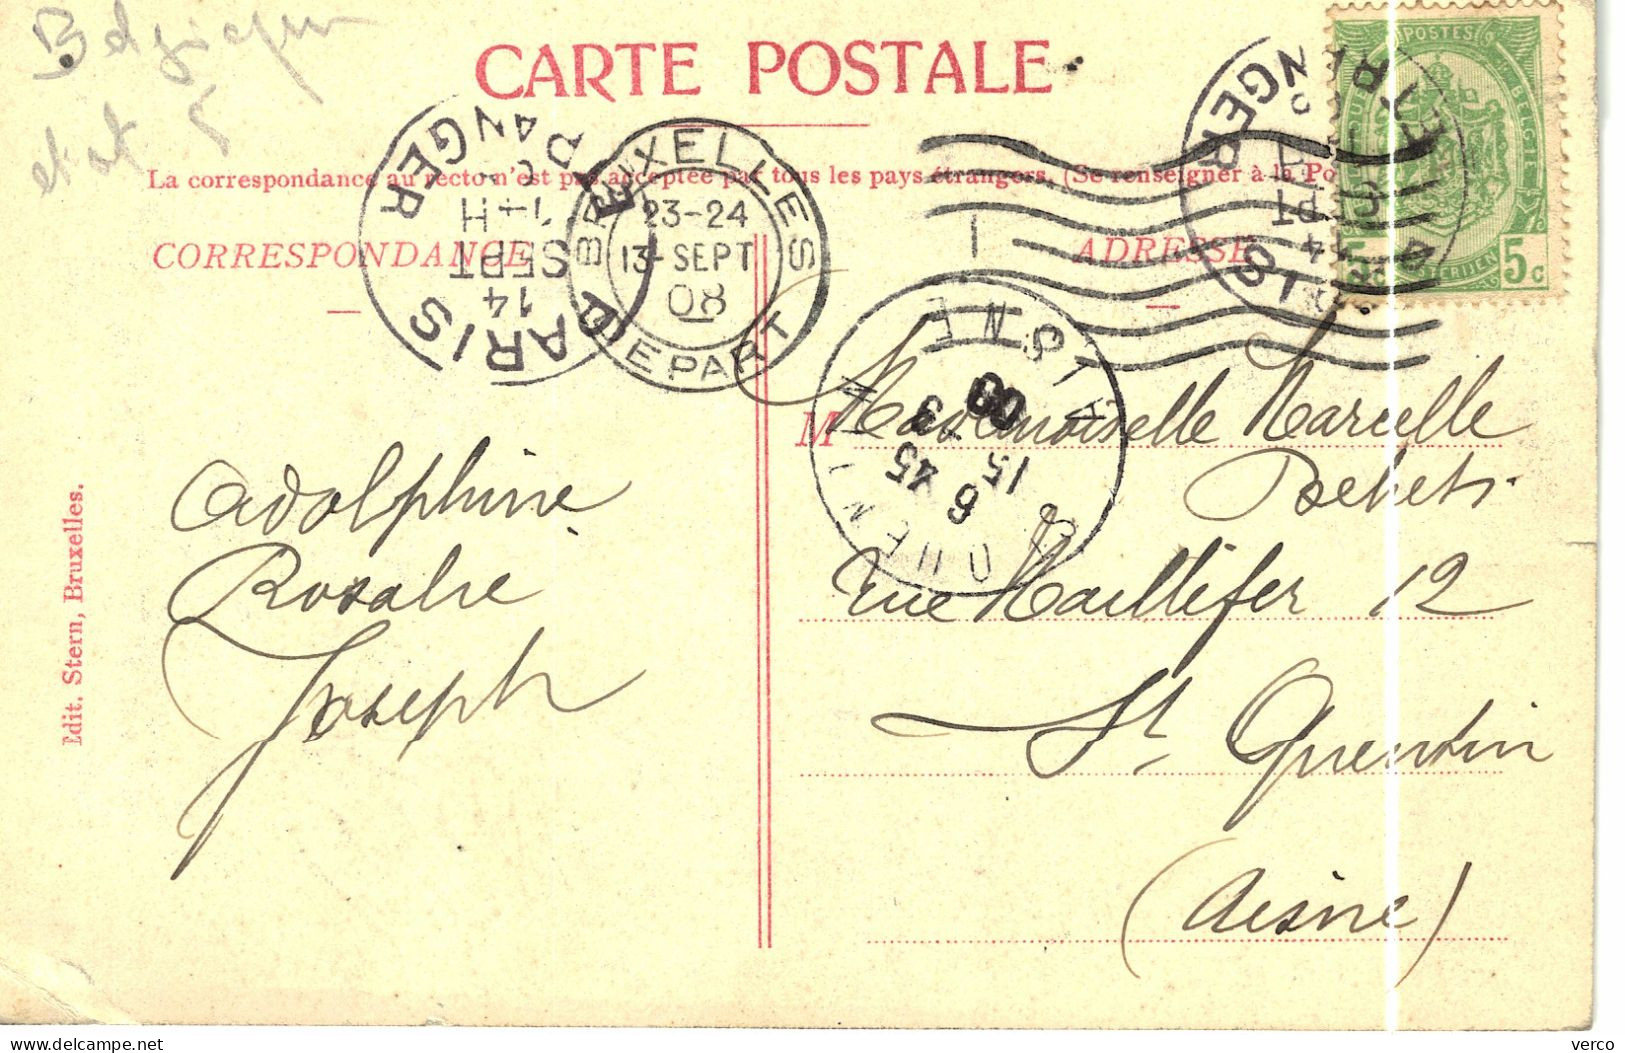 Belgique
etat 5
CARTE POSTALE
La correspondance au recto n'est pas acceptée par tous les pays étrangers. (Se renseigner à la Po
CORRESPONDANCE
ADRESSE
PARIS ETRANGER
14 SEPT
BRUXELLES
23-24
13-SEPT
08
DEPART
POSTES
5c 5c
ST QUENTIN AISNE
6 45
15 - 9
09
M Mademoiselle Marcelle
Behets
rue Maillefer 12
St Quentin
(Aisne)
Adolphine
Rosalie
Joseph
Edit. Stern, Bruxelles.
verco